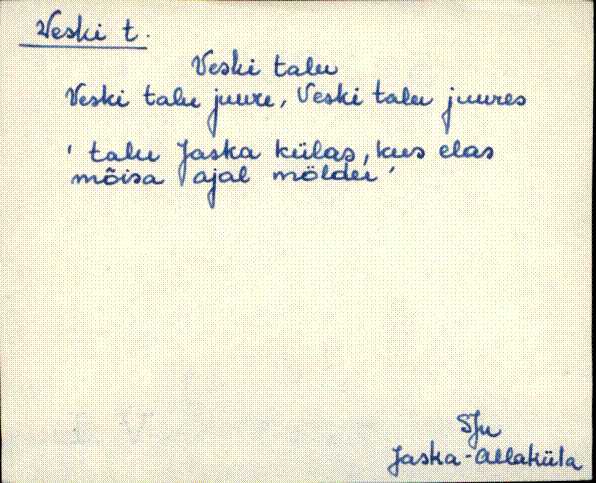 Veski t.
Veski talu
Veski talu juure, Veski talu juures
' talu Jaska külas, kus elas
mõisa ajal mölder '
SJn
Jaska-Allaküla